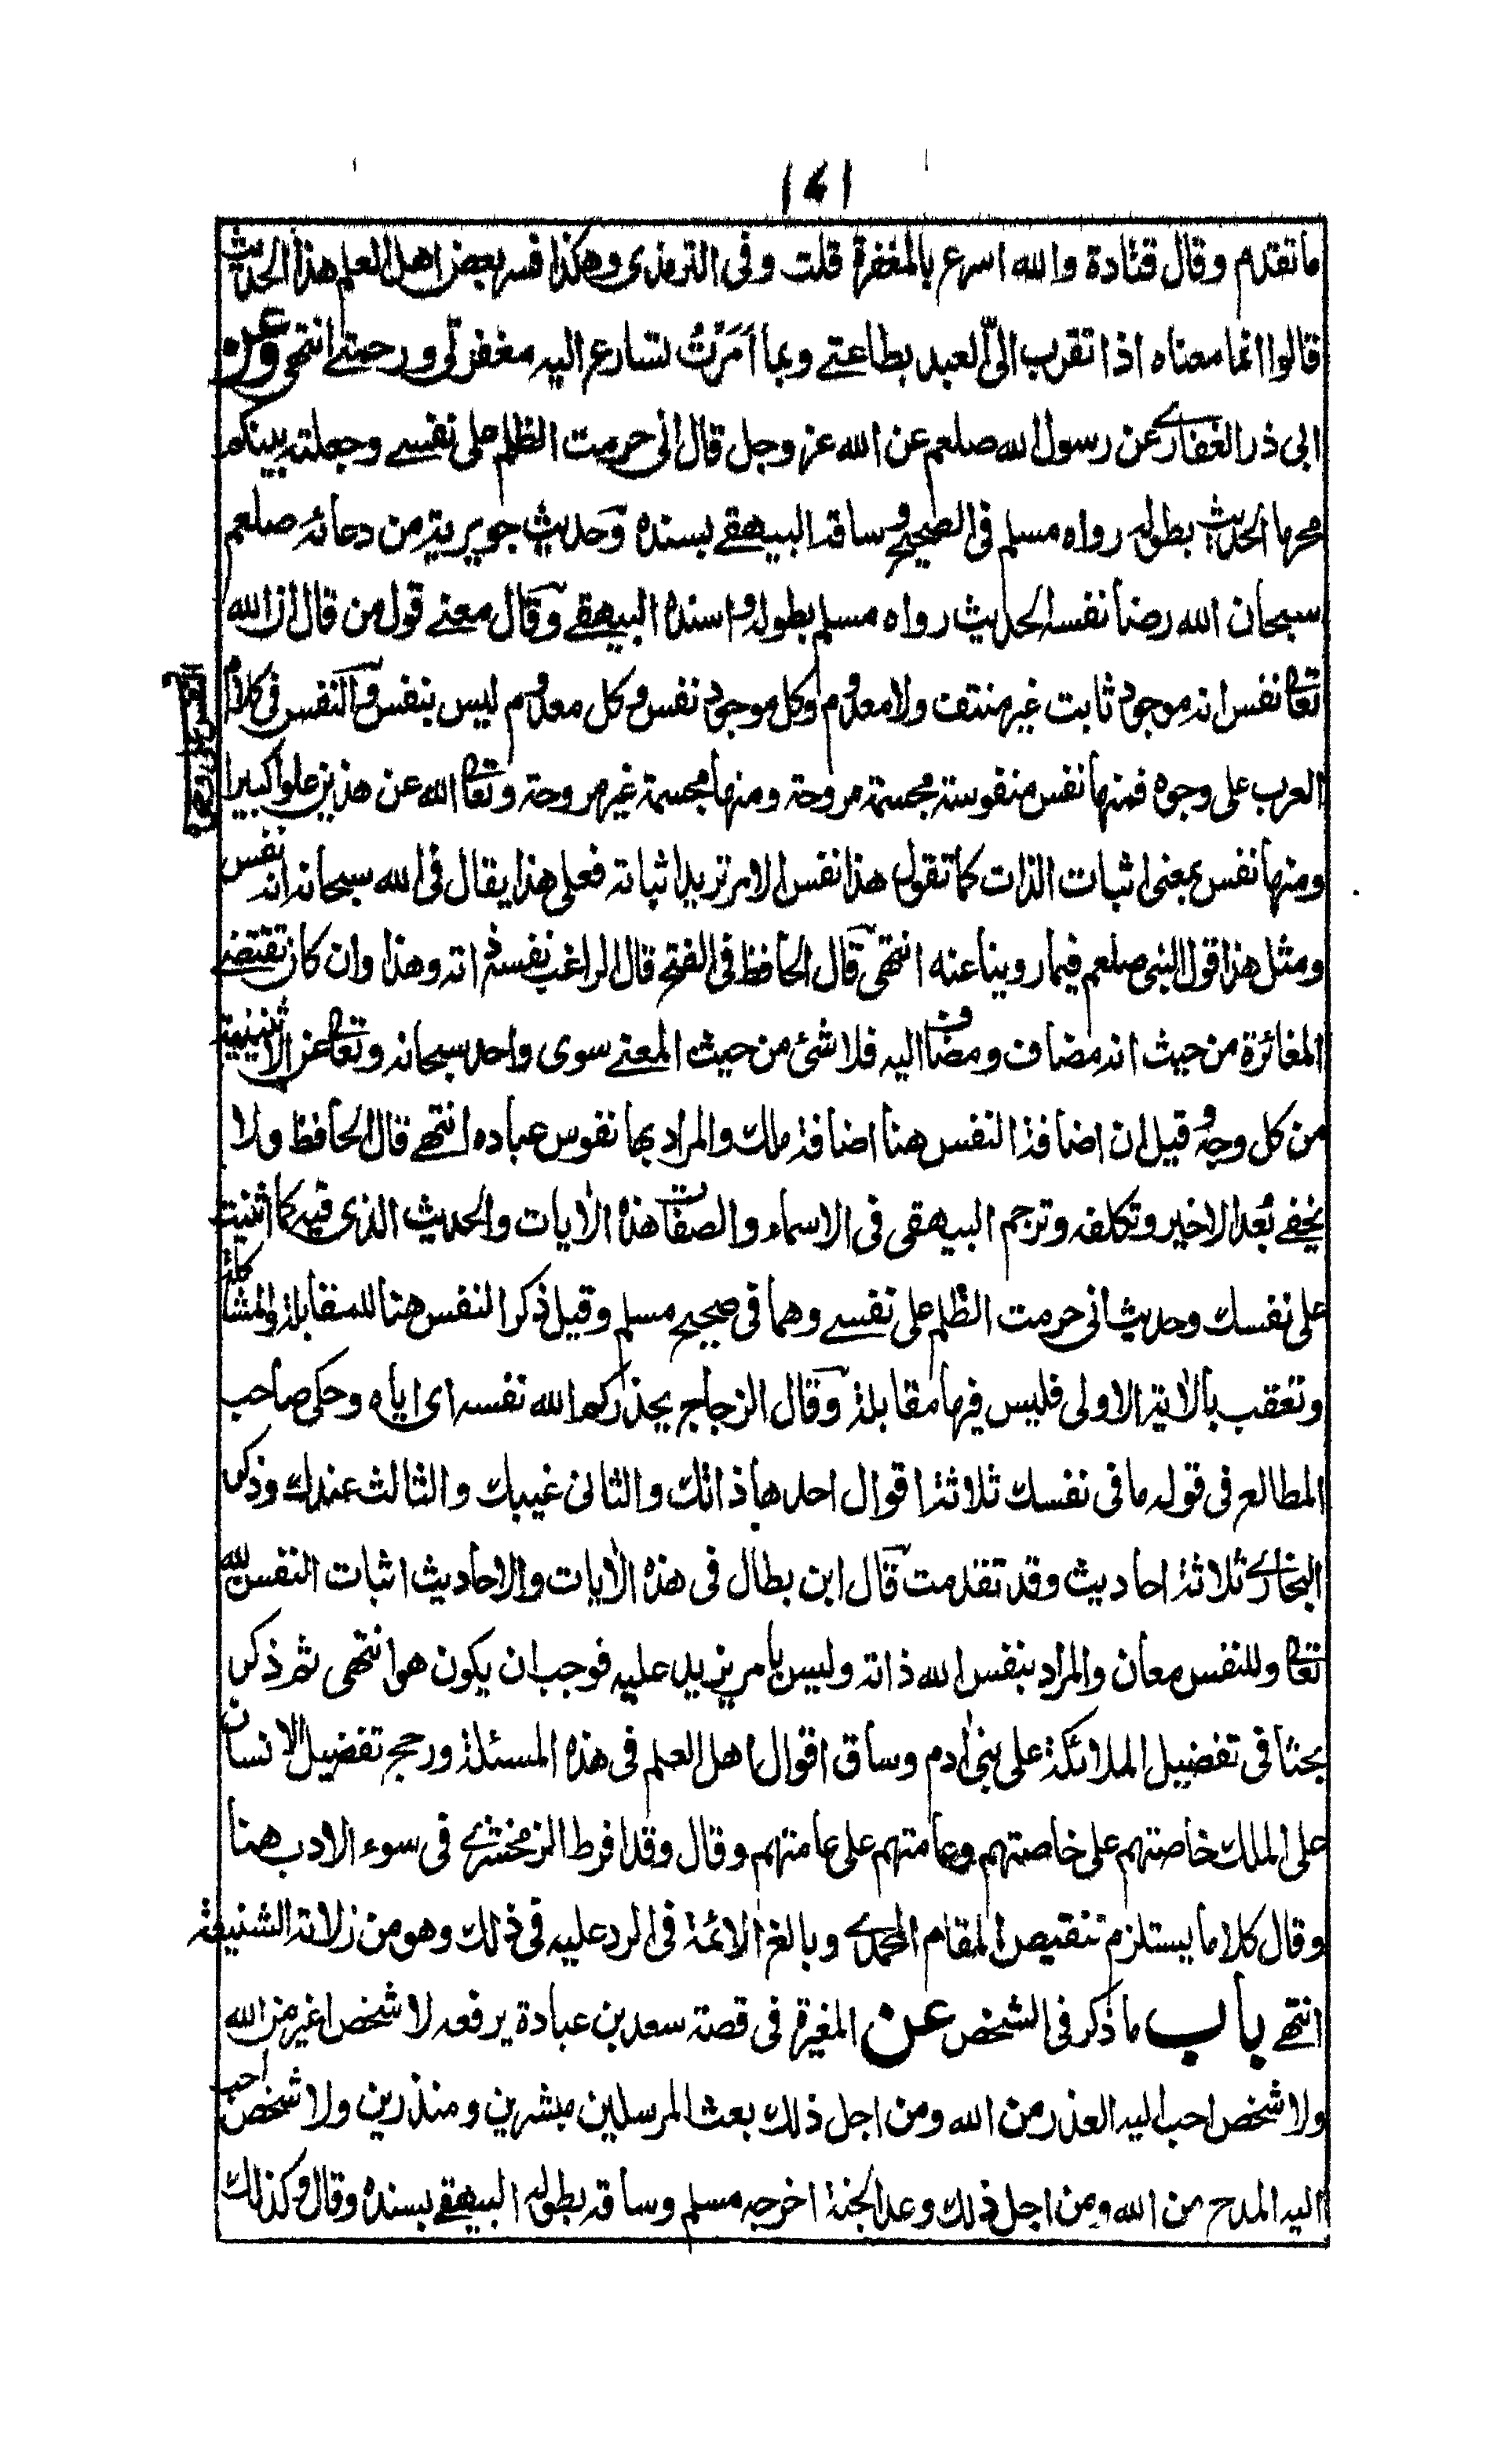 ١٤١
ما تقدم وقال قتادة والله اسرع بالمغفرة قلت وفى الترمذى وهكذا فسر بعض اهل العلم هذا الحديث
قالوا انما معناه اذا تقرب الىّ العبد بطاعتے وبما اَمَرْتُ تسارع اليه مغفرتى ورحمتے انتهى وعن
ابى ذر الغفارے عن رسول الله صلعم عن الله عز وجل قال انى حرمت الظلم على نفسے وجعلته بينكم
محرما الحديث بطوله رواه مسلم فى الصحيح وساقه البيهقے بسنده وحديث جويرية من دعائه صلعم
سبحان الله رضا نفسه الحديث رواه مسلم بطوله واسنده البيهقے وقال معنے قول من قال ان الله
تعالى نفس انه موجود ثابت غير منتف ولا معدوم وكل موجود نفس وكل معدوم ليس بنفس والنفس فى كلام
العرب على وجوه فمنها نفس منفوسة مجسمة مروحة ومنها مجسمة غير مروحة وتعالى الله عن هذين علوا كبيرا
ومنها نفس بمعنى اثبات الذات كما تقول هذا نفس الامر تريد اثباته فعلى هذا يقال فى الله سبحانه انه نفس
ومثل هذا قول النبى صلعم فيما روينا عنه انتهى قال الحافظ فى الفتح قال الراغب نفسه ذاته وهذا وان كان تقتضے
المغائرة من حيث انه مضاف ومضاف اليه فلا شئ من حيث المعنے سوى واحد سبحانه وتعالى عن الاثنينية
من كل وجه وقيل ان اضافة النفس هنا اضافة ملك والمراد بها نفوس عباده انتهے قال الحافظ ولا
يخفے بُعد الاخير وتكلفه وترجم البيهقى فى الاسماء والصفات هذه الايات والحديث الذى فيه كما اثنيت
على نفسك وحديث انى حرمت الظلم على نفسے وهما فى صحيح مسلم وقيل ذكر النفس هنا للمقابلة والمشاكلة
وتعقب بالاية الاولى فليس فيها مقابلة وقال الزجاج يحذركم الله نفسه اى اياه وحكى صاحب
المطالع فى قوله ما فى نفسك ثلاثة اقوال احدها ذاتك والثانى غيبك والثالث عندك وذكر
البخارے ثلاثة احاديث وقد تقدمت قال ابن بطال فى هذه الايات والاحاديث اثبات النفس لله
تعالى وللنفس معان والمراد بنفس الله ذاته وليس بامر يزيد عليه فوجب ان يكون هو انتهى ثم ذكر
بحثا فى تفضيل الملائكة على بنى ادم وساق اقوال اهل العلم فى هذه المسئلة ورجح تفضيل الانسان
على الملك خاصتهم على خاصتهم وعامتهم على عامتهم وقال وقد افرط الزمخشرے فى سوء الادب هنا
وقال كلاما يستلزم تنقيص المقام المحمدے وبالغ الائمة فى الرد عليه فى ذلك وهو من زلاته الشنيعة
انتهے باب ما ذكر فى الشخص عن المغيرة فى قصة سعد بن عبادة يرفعه لا شخص اغير من الله
ولا شخص احب اليه العذر من الله ومن اجل ذلك بعث المرسلين مبشرين ومنذرين ولا شخص احب
اليه المدح من الله ومن اجل ذلك وعد الجنة اخرجه مسلم وساقه بطوله البيهقے بسنده وقال وكذلك